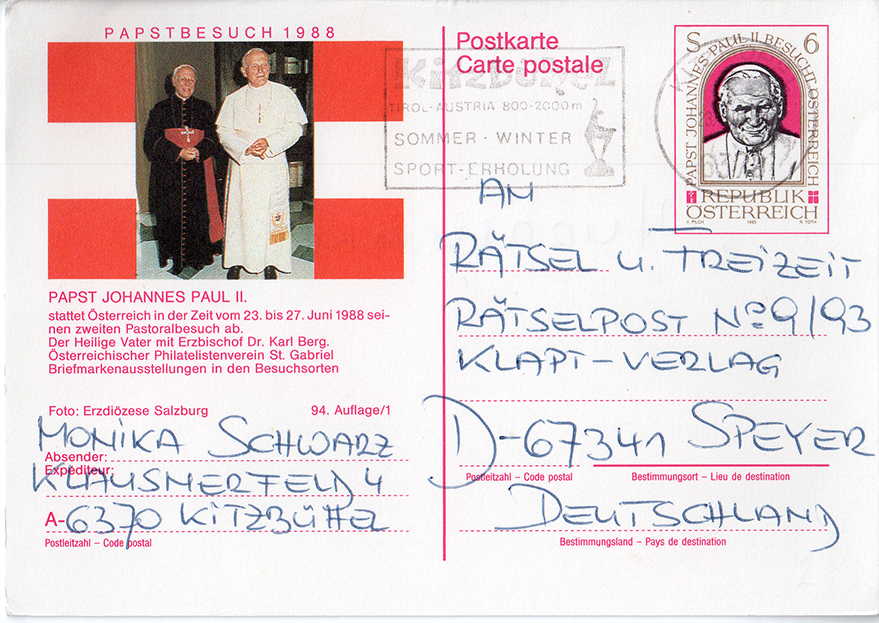 PAPSTBESUCH 1988
PAPST JOHANNES PAUL II.
stattet Österreich in der Zeit vom 23. bis 27. Juni 1988 sei-
nen zweiten Pastoralbesuch ab.
Der Heilige Vater mit Erzbischof Dr. Karl Berg.
Österreichischer Philatelistenverein St. Gabriel
Briefmarkenausstellungen in den Besuchsorten
Foto: Erzdiözese Salzburg 94. Auflage/1
MONIKA SCHWARZ
Absender:
Expéditeur:
KLAUSNERFELD 4
A-6370 KITZBÜHEL
Postleitzahl – Code postal
Postkarte
Carte postale
Kitzbühel
TIROL-AUSTRIA 800-2000m
SOMMER - WINTER
SPORT-ERHOLUNG
S 6
PAPST JOHANNES PAUL II. BESUCHT ÖSTERREICH
REPUBLIK
ÖSTERREICH
A. PILCH 1988 A. TOTH
AN
RÄTSEL u. FREIZEIT
RÄTSELPOST Nº 9/93
KLAPT-VERLAG
D-67341 SPEYER
Postleitzahl – Code postal Bestimmungsort – Lieu de destination
DEUTSCHLAND
Bestimmungsland – Pays de destination